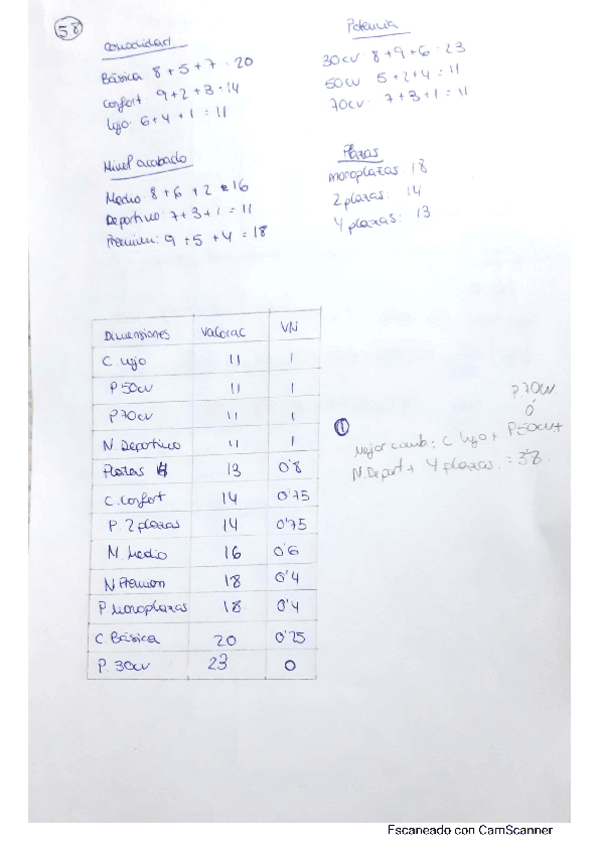 58
Comodidad
Básica: 8 + 5 + 7 = 20
Confort 9 + 2 + 3 = 14
Lujo: 6 + 4 + 1 = 11
Potencia
30cv: 8 + 9 + 6 = 23
50cv 5 + 2 + 4 = 11
70cv: 7 + 3 + 1 = 11
Nivel acabado
Medio: 8 + 6 + 2 = 16
Deportivo: 7 + 3 + 1 = 11
Premium: 9 + 5 + 4 = 18
Plazas
monoplazas: 18
2 plazas: 14
4 plazas: 13
Dimensiones Valorac VN
C lujo 11 1
P 50cv 11 1
P 70cv 11 1
N Deportivo 11 1
Plazas 4 13 0'8
C. Confort 14 0'75
P. 2 plazas 14 0'75
N. Medio 16 0'6
N Premium 18 0'4
P Monoplazas 18 0'4
C Básica 20 0'25
P. 30cv 23 0
P 70cv
ó
1 Mejor comb: C lujo + P50cv +
N. Deport + 4 plazas. = 3'8
Escaneado con CamScanner